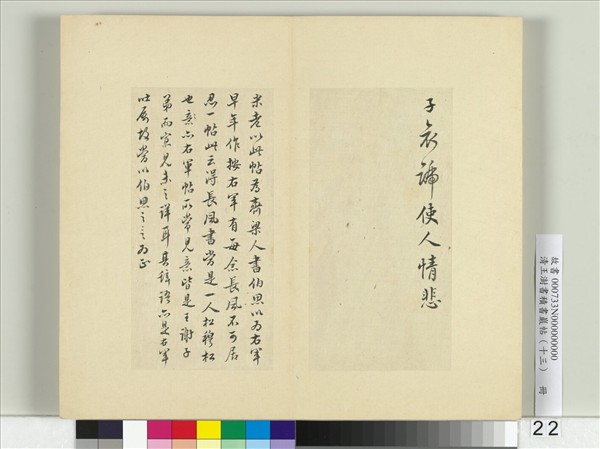 子哀號使人情悲
米老以此帖為齊梁人書伯思以為右軍
早年作按右軍有每念長風不可居
忍一帖此云得長風書當是一人松穆松
也意亦右軍帖所常見意皆是王謝子
弟而 見未之詳耳其辭語亦是右軍
吐屬故當以伯思之言為正
故書 000733N000000000
清王澍書積書巖帖（十三） 冊
22